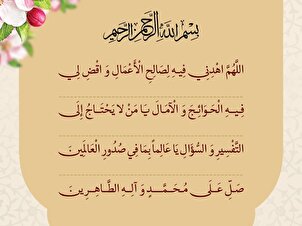 بِسْمِ اللَّهِ الرَّحْمَنِ الرَّحِيمِ
اللَّهُمَّ اهْدِنِي فِيهِ لِصَالِحِ الْأَعْمَالِ وَ اقْضِ لِي
فِيهِ الْحَوَائِجَ وَ الْآمَالَ يَا مَنْ لَا يَحْتَاجُ إِلَى
التَّفْسِيرِ وَ السُّؤَالِ يَا عَالِماً بِمَا فِي صُدُورِ الْعَالَمِينَ
صَلِّ عَلَى مُحَمَّدٍ وَ آلِهِ الطَّاهِرِينَ